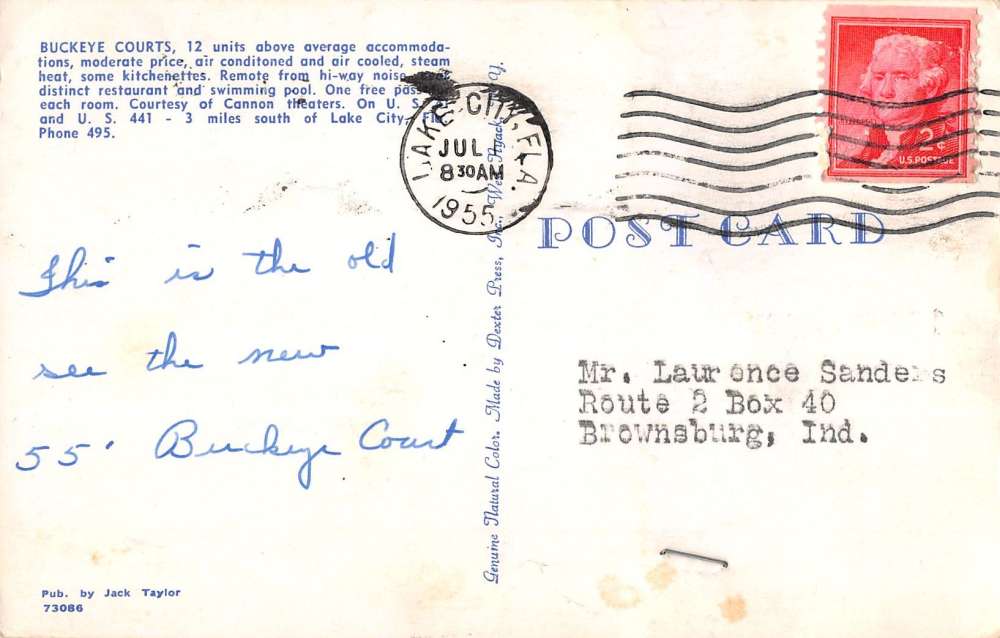 BUCKEYE COURTS, 12 units above average accommoda-
tions, moderate price, air conditoned and air cooled, steam
heat, some kitchenettes. Remote from hi-way noise,
distinct restaurant and swimming pool. One free pass
each room. Courtesy of Cannon theaters. On U. S.
and U. S. 441 - 3 miles south of Lake City, Fla.
Phone 495.
LAKE CITY, FLA.
JUL
8 30 AM
1955
2¢
U.S. POSTAGE
POST CARD
This is the old
see the new
55' Buckeye Court
Mr. Laurence Sanders
Route 2 Box 40
Brownsburg, Ind.
Genuine Natural Color. Made by Dexter Press, Inc., West Nyack, N. Y.
Pub. by Jack Taylor
73086